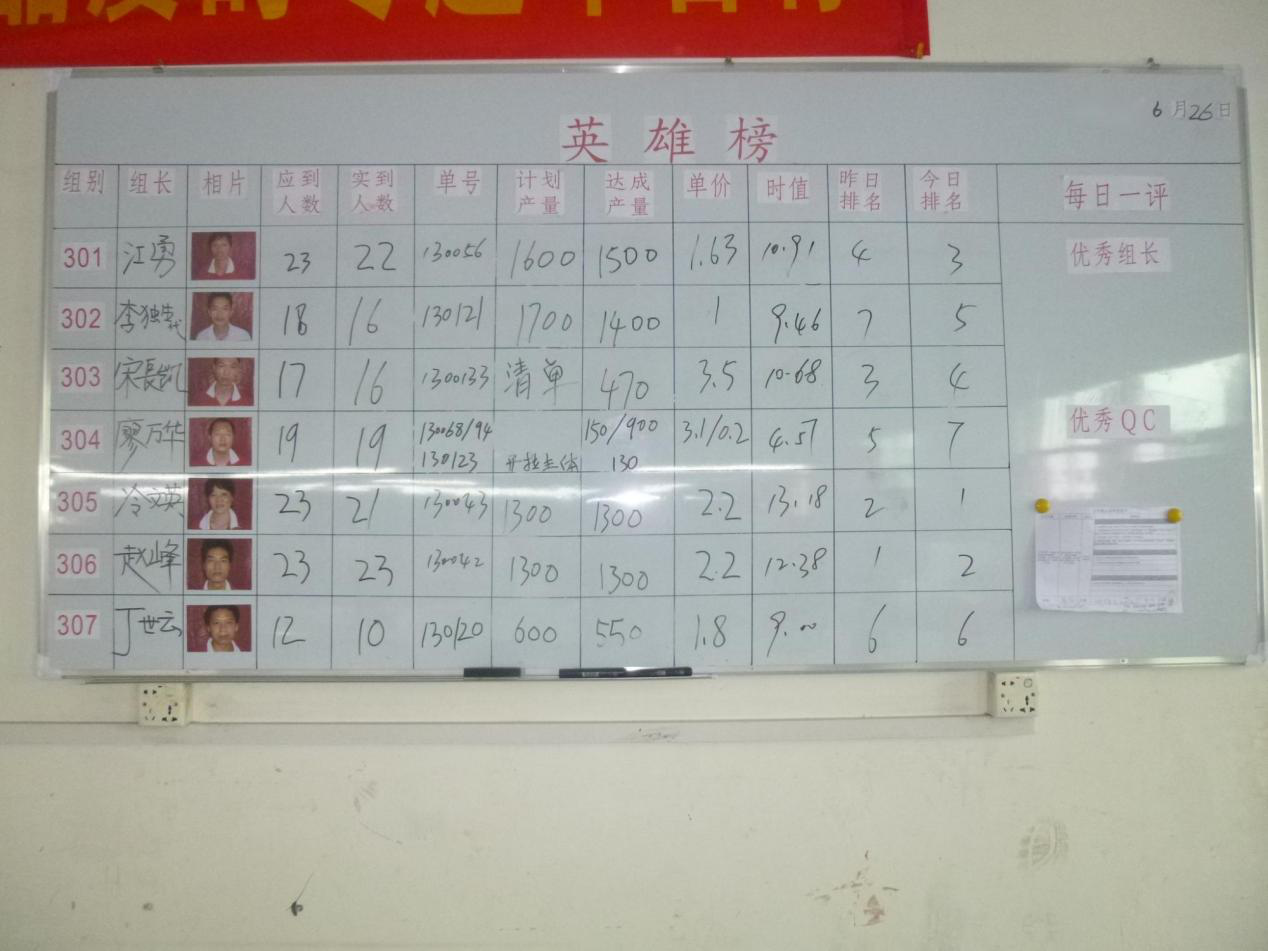 英雄榜
6月26日
组别 组长 相片 应到人数 实到人数 单号 计划产量 达成产量 单价 时值 昨日排名 今日排名 每日一评
301 江勇 23 22 130056 1600 1500 1.63 10.91 4 3 优秀组长
302 18 16 130121 1700 1400 1 9.46 7 5
303 宋長凯 17 16 1300133 清单 470 3.5 10.68 3 4
304 廖万华 19 19 130068/94 150/900 3.1/0.2 4.57 5 7 优秀QC
130123 开拉主体 130
305 冷文英 23 21 130043 1300 1300 2.2 13.18 2 1
306 赵峰 23 23 130042 1300 1300 2.2 12.38 1 2
307 丁世云 12 10 130120 600 550 1.8 9.00 6 6